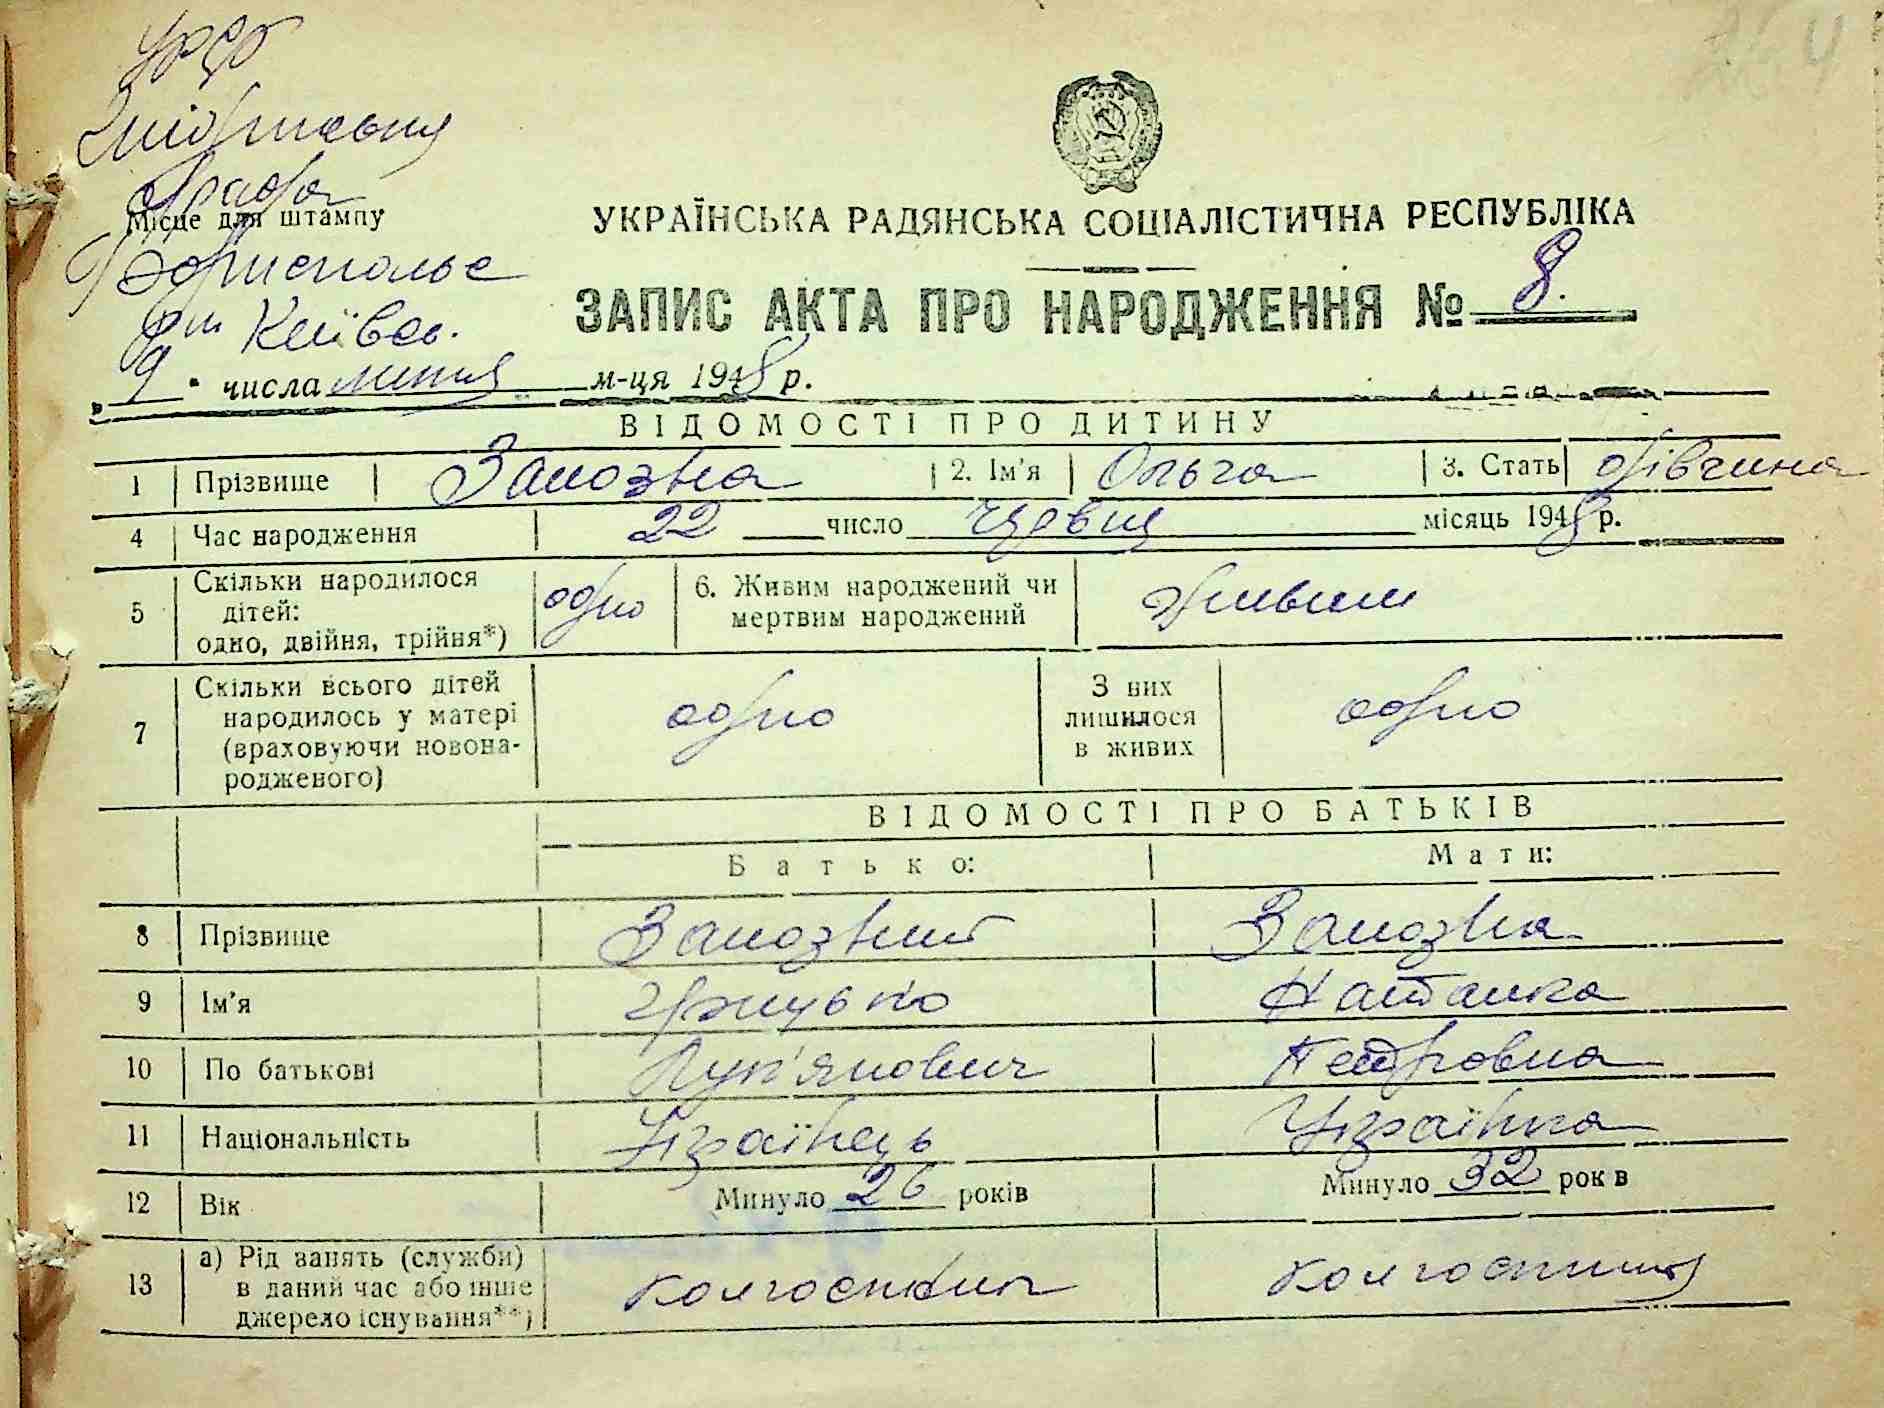 УРСР
рада
Місце для штампу
Бориспольс
р-н Київсь.
УКРАЇНСЬКА РАДЯНСЬКА СОЦІАЛІСТИЧНА РЕСПУБЛІКА
ЗАПИС АКТА ПРО НАРОДЖЕННЯ № 8.
9 числа липня м-ця 1948 р.
ВІДОМОСТІ ПРО ДИТИНУ
1 Прізвище Замозна 2. Ім'я Ольга 3. Стать дівчина
4 Час народження 22 число червня місяць 1948 р.
5 Скільки народилося дітей: одно, двійня, трійня*) одно 6. Живим народжений чи мертвим народжений живим
7 Скільки всього дітей народилось у матері (враховуючи новонародженого) одно З них лишилося в живих одно
ВІДОМОСТІ ПРО БАТЬКІВ
Батько: Мати:
8 Прізвище Замозний Замозна
9 Ім'я Грицько Наталка
10 По батькові Луп'янович Петровна
11 Національність Українець Українка
12 Вік Минуло 26 років Минуло 32 рок в
13 а) Рід занять (служби) в даний час або інше джерело існування**) колгоспник колгоспниця